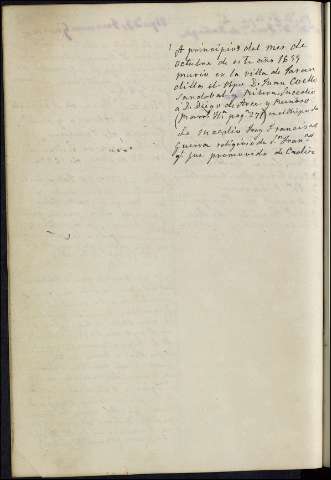 A principios del mes de
octubre de este año 1655
murio en la villa de Jaran
dilla el Obpo D. Juan Coello
Sandobal y Ribera, Sucedio
a D. Diego de Arce y Reinoso
(Marg. Hi pag. 278) en el Obispado
Le sucedio Fray Francisco
Guerra religioso de Sn. Franco
q. fue promovido de Cadiz